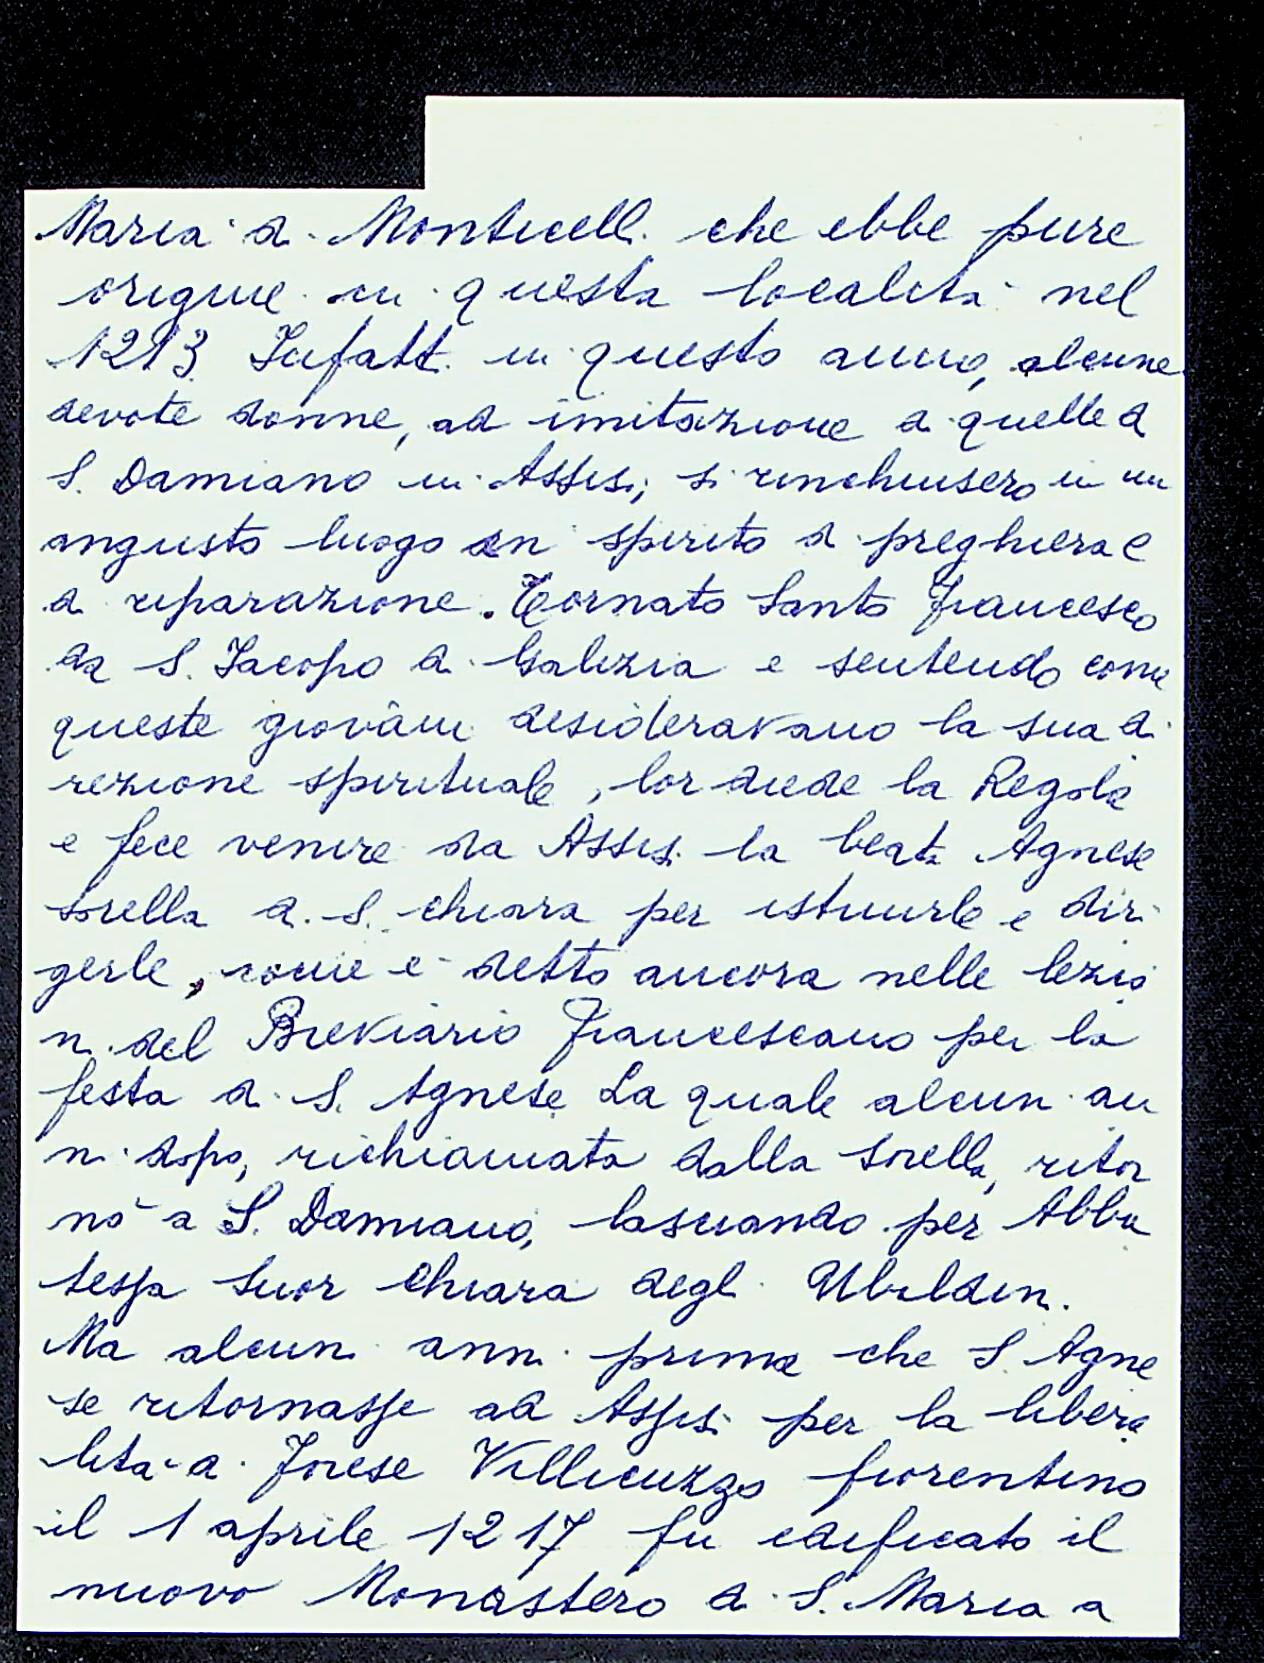 Maria di Monticelli che ebbe pure
origine in questa località nel
1213. Infatti in questo anno, alcune
devote donne, ad imitazione di quelle di
S. Damiano in Assisi, si rinchiusero in un
angusto luogo in spirito di preghiera e
di riparazione. Tornato Santo Francesco
da S. Jacopo di Galizia e sentendo come
queste giovani desideravano la sua di
rezione spirituale, lor diede la Regola
e fece venire da Assisi la beata Agnese
sorella di S. Chiara per istruirle e diri
gerle, come è detto ancora nelle lezio
ni del Breviario Francescano per la
festa di S. Agnese. La quale alcuni an
ni dopo, richiamata dalla sorella, ritor
nò a S. Damiano, lasciando per Abba
dessa Suor Chiara degli Ubaldini.
Ma alcuni anni prima che S. Agne
se ritornasse ad Assisi per la libera
lità di Forese Villicuzzo fiorentino
il 1 aprile 1217 fu edificato il
nuovo Monastero di S. Maria a